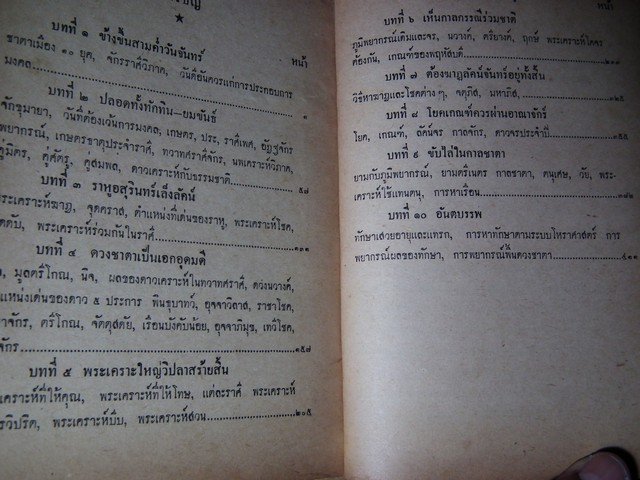 หน้า
บทที่ ๑ ข้างขึ้นสามค่ำวันจันทร์
ชาตาเมือง ๑๐ ยุค, จักรราศีวิภาค, วันดีอันควรแก่การประกอบการ
มงคล ๓
บทที่ ๒ ปลอดทั้งทักทิน—ยมขันธ์
จักขุมายา, วันที่ต้องเว้นการมงคล, เกษตร, ประ, ราศีเพศ, อัฏฐจักร
พยากรณ์, เกษตรธาตุประจำราศี, ทวาทศราศีจักร, นพเคราะห์วิภาค,
คู่มิตร, คู่ศัตรู, คู่สมพล, ดาวเคราะห์กับธรรมชาติ ๕๗
บทที่ ๓ ราหูอสุรินทร์เล็งลัคน์
พระเคราะห์ฆาฏ, จุดคราส, ตำแหน่งที่เด่นของราหู, พระเคราะห์โชค,
ดับ, พระเคราะห์ร่วมกันในราศี ๑๓๑
บทที่ ๔ ดวงชาตาเป็นเอกอุดมดี
มูลตรีโกณ, นิจ, ผลของดาวเคราะห์ในทวาทศราศี, ดวงนวางค์,
แหน่งเด่นของดาว ๕ ประการ พินธุบาทว์, อุจจาวิลาส, ราชาโชค,
จักร, ตรีโกณ, จัตตุสดัย, เรือนบังคับน้อย, อุจจาภิมุข, เทวีโชค,
จักร ๑๕๗
บทที่ ๕ พระเคราะห์ใหญ่วิปลาสร้ายสิ้น
เคราะห์ที่ให้คุณ, พระเคราะห์ที่ให้โทษ, แต่ละราศี พระเคราะห์
วิปริต, พระเคราะห์บีบ, พระเคราะห์สวน ๒๐๕
หน้า
บทที่ ๖ เห็นกาลกรณีร่วมชาติ
ภูมิพยากรณ์เดิมและจร, นวางค์, ตรียางค์, ฤกษ์ พระเคราะห์โคจร
ต้องกัน, เกณฑ์ของพฤหัสบดี
บทที่ ๗ ต้องนาฏลัคน์จันทร์อยู่ทั้งสิ้น
วิธีหาฆาฏและโชคต่างๆ, จตุภิส, มหาภิส,
บทที่ ๘ โยคเกณฑ์ควรผ่านอาณาจักร์
โยค, เกณฑ์, ลัคน์จร กาลจักร, ดาวจรประจำปี
บทที่ ๙ ขับไล่ในกาลชาตา
ยามกับภูมิพยากรณ์, ยามตรีเนตร กาลชาตา, ตนุเศษ, วัย, พระ-
เคราะห์ใช้แทนตนุ, การหาเรือน
บทที่ ๑๐ อันตบรรพ
ทักษาเสวยอายุและแทรก, การหาทักษาตามระบบโหราศาสตร์ การ
พยากรณ์ผลของทักษา, การพยากรณ์พื้นดวงชาตา ๔๑๑